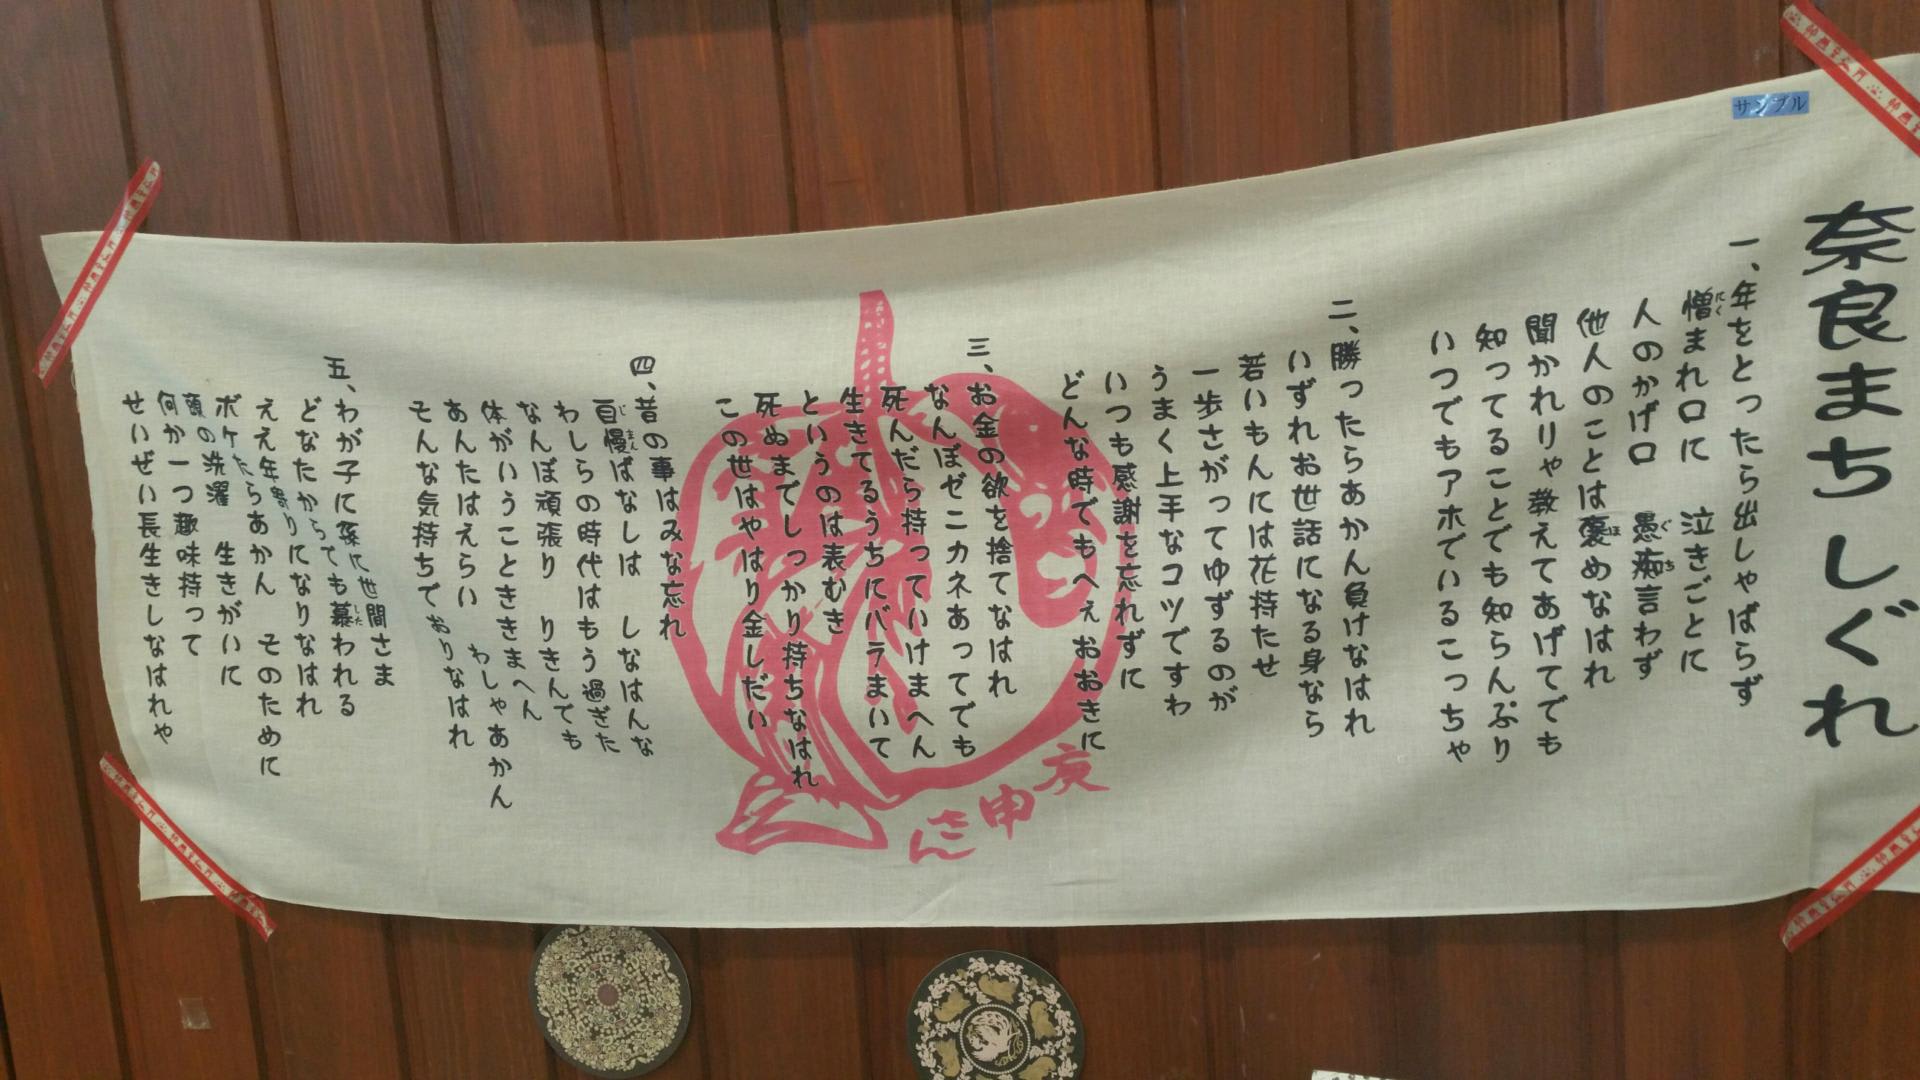 サンプル
奈良まちしぐれ
一、年をとったら出しゃばらず
憎まれ口に 泣きごとに
人のかげ口 愚痴言わず
他人のことは褒めなはれ
聞かれりゃ教えてあげてでも
知ってることでも知らんぷり
いつでもアホでいるこっちゃ
二、勝ったらあかん負けなはれ
いずれお世話になる身なら
若いもんには花持たせ
一歩さがってゆずるのが
うまく上手なコツですわ
いつも感謝を忘れずに
どんな時でもへえおおきに
三、お金の欲を捨てなはれ
なんぼゼニカネあってでも
死んだら持っていけまへん
生きてるうちにバラまいて
というのは表むき
死ぬまでしっかり持ちなはれ
この世はやはり金しだい
四、昔の事はみな忘れ
自慢ばなしは しなはんな
わしらの時代はもう過ぎた
なんぼ頑張り りきんでも
体がいうことききまへん
あんたはえらい わしゃあかん
そんな気持ちでおりなはれ
五、わが子に孫に世間さま
どなたからでも慕われる
ええ年寄りになりなはれ
ボケたらあかん そのために
頭の洗濯 生きがいに
何か一つ趣味持って
せいぜい長生きしなはれや
庚申さん